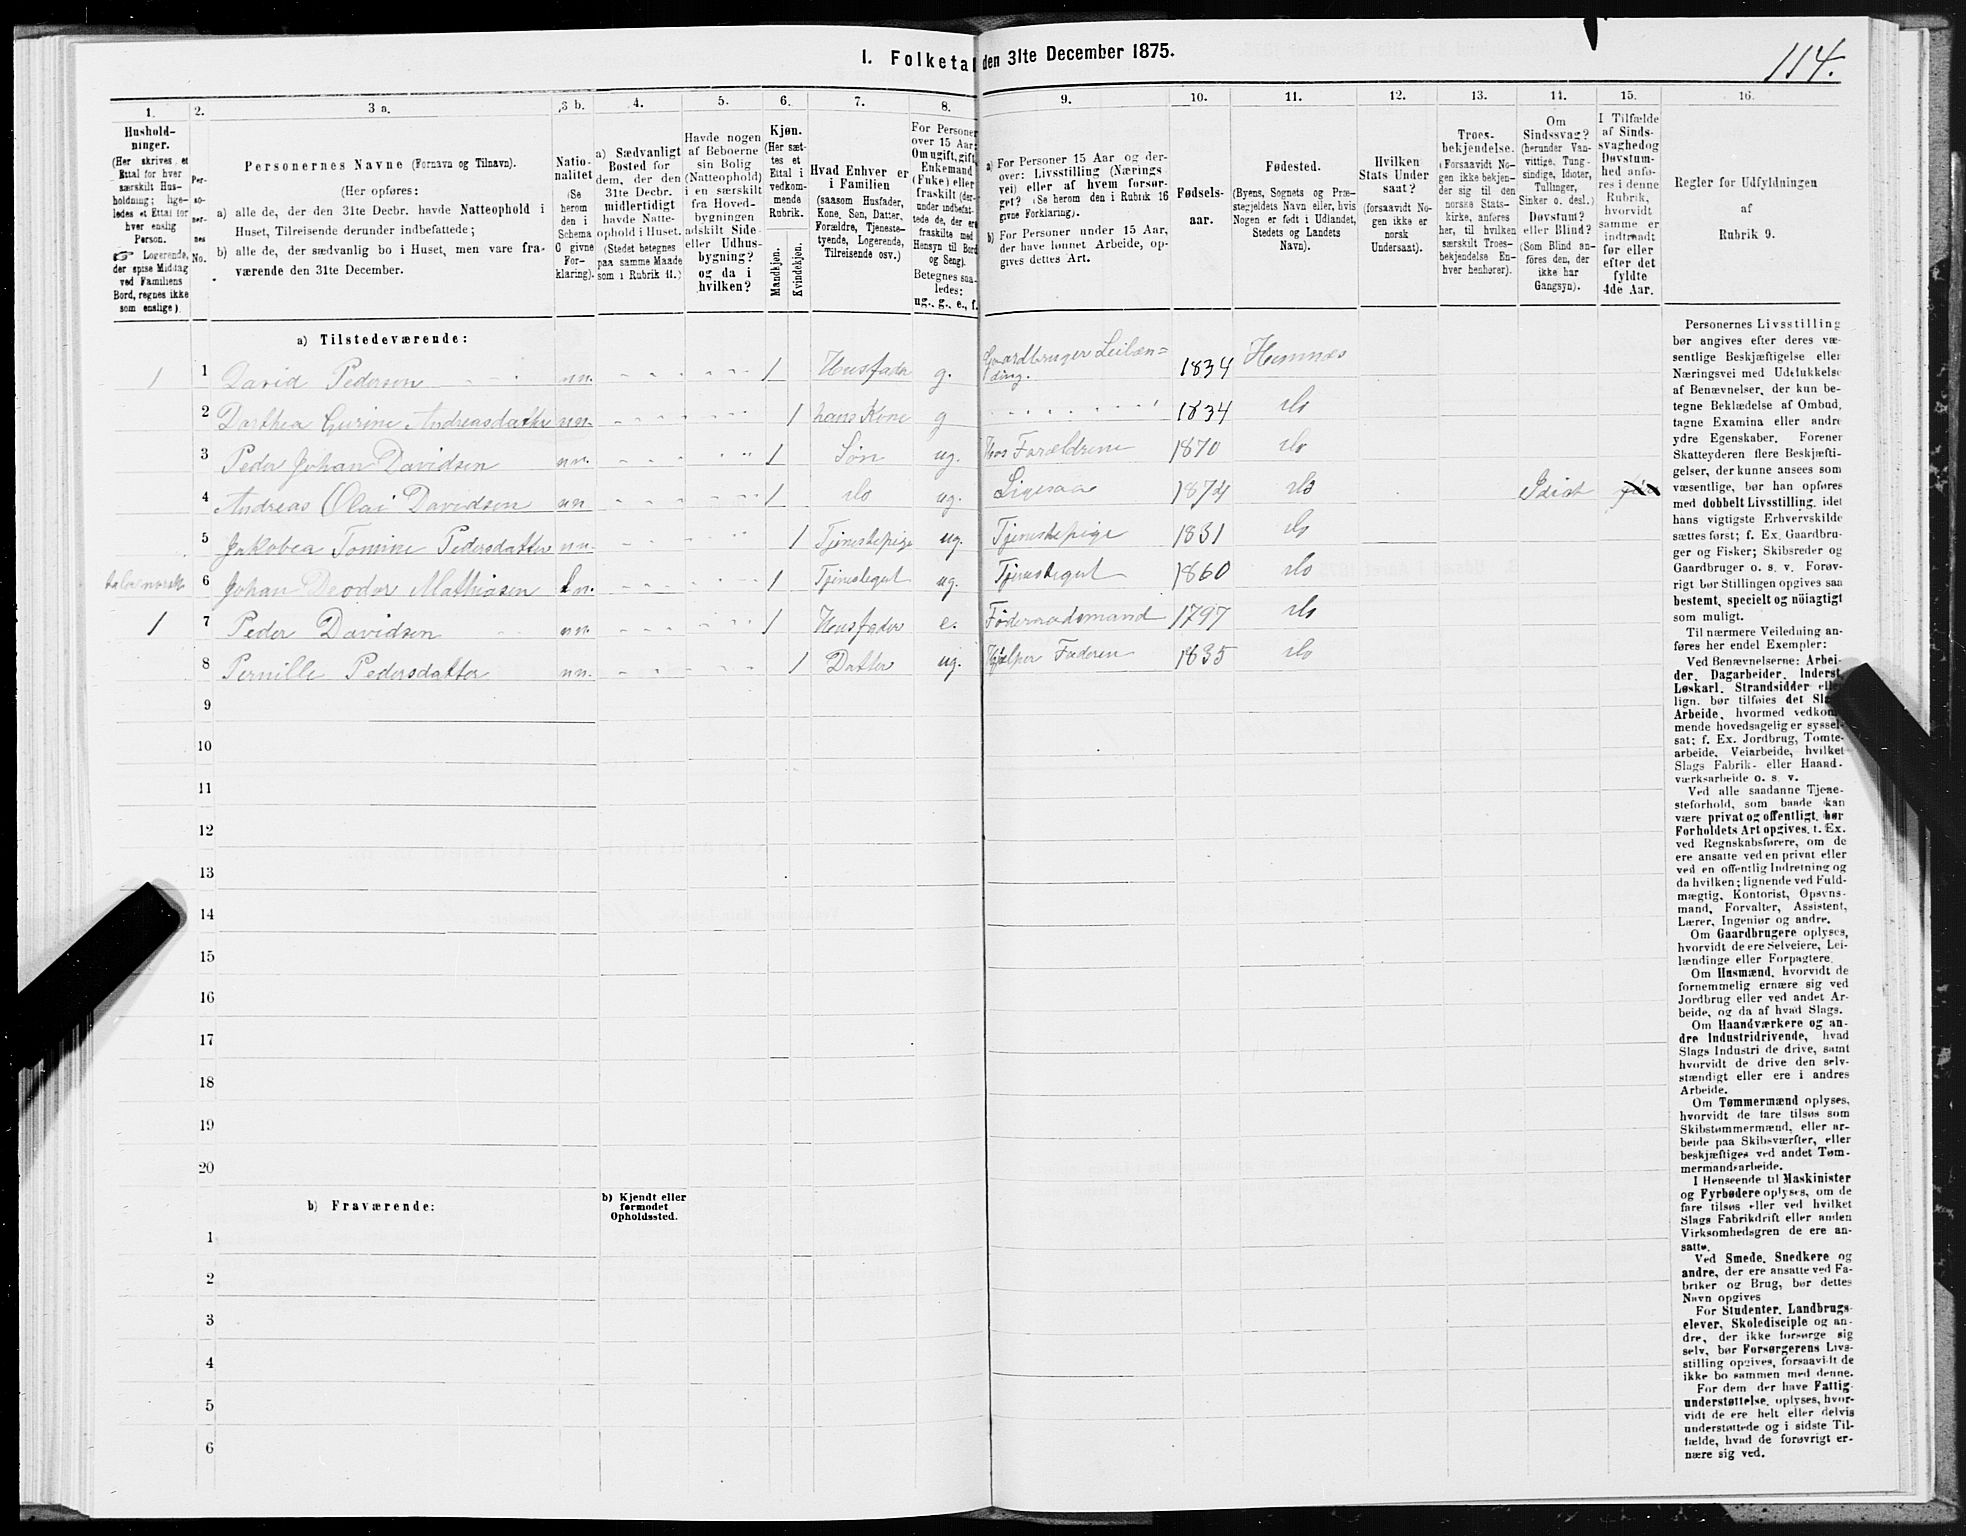 I. Folketal den 31te December 1875.
114.
1.
Hushold-
ninger.
(Her skrives et
Ettal for hver
særskilt Hus-
holdning; lige-
ledes et Ettal for
hver enslig
Person.
☞ Logerende,
der spise Middag
ved Familiens
Bord, regnes ikke
som enslige).
2.
Per-
so-
ner-
nes
No.
3 a.
Personernes Navne (Fornavn og Tilnavn).
(Her opføres:
a) alle de, der den 31te Decbr. havde Natteophold i
Huset, Tilreisende derunder indbefattede;
b) alle de, der sædvanlig bo i Huset, men vare fra-
værende den 31te December.
3 b.
Natio-
nalitet
(Se
herom
den i
Schema
G givne
For-
klaring).
4.
a) Sædvanligt
Bosted for
dem, der den
31te Decbr.
midlertidigt
havde Natte-
ophold i Huset.
(Stedet betegnes
paa samme Maade
som i Rubrik 11.)
5.
Havde nogen
af Beboerne
sin Bolig
(Natteophold)
i en særskilt
fra Hoved-
bygningen
adskilt Side-
eller Udhus-
bygning?
og da i
hvilken?
6.
Kjøn.
(Her sæt-
tes et
Ettal i
vedkom-
mende
Rubrik.
Mandkjøn.
Kvindekjøn.
7.
Hvad Enhver er
i Familien
(saasom Husfader,
Kone, Søn, Datter,
Forældre, Tjeneste-
tyende, Logerende,
Tilreisende osv.)
8.
For Personer
over 15 Aar:
Om ugift, gift,
Enkemand
(Enke) eller
fraskilt (der-
under indbefat-
tede de, der ere
fraskilte med
Hensyn til Bord
og Seng).
Betegnes saa-
ledes:
ug., g., e., f.
9.
a) For Personer 15 Aar og der-
over: Livsstilling (Nærings
vei) eller af hvem forsør-
get? (Se herom den i Rubrik 16
givne Forklaring).
b) For Personer under 15 Aar,
der have lønnet Arbeide, op-
gives dettes Art.
10.
Fødsels-
aar.
11.
Fødested.
(Byens, Sognets og Præ-
stegjeldets Navn eller, hvis
Nogen er født i Udlandet,
Stedets og Landets
Navn).
12.
Hvilken
Stats Under
saat?
(forsaavidt No-
gen ikke er
norsk
Undersaat).
13.
Troes-
bekjendelse.
(Forsaavidt No-
gen ikke bekjen-
der sig til den
norske Stats-
kirke, anføres
her, til hvilken
særskilt Troes-
bekjendelse En-
hver henhører).
14.
Om
Sindssvag?
(herunder Van-
vittige, Tung-
sindige, Idioter,
Tullinger,
Sinker o. desl.)
Døvstum?
eller Blind?
(Som Blind an-
føres den, der
ikke har
Gangsyn).
15.
I Tilfælde
af Sinds-
svaghed og
Døvstum-
hed anfø-
res i denne
Rubrik,
hvorvidt
samme er
indtraadt
før eller
efter det
fyldte
4de Aar.
16.
Regler for Udfyldningen
af
Rubrik 9.
a) Tilstedeværende:
1 1 David Pedersen nn. 1 Husfader g. Gaardbruger Leilæn=
ding. 1834 Hemnæs
2 Dorthea Gurine Andreasdatter nn. 1 hans Kone g 1834 do
3 Peder Johan Davidsen nn. 1 Søn ug. Hos Forældrene 1870 do
4 Andreas Olai Davidsen nn 1 do ug. Ligesaa 1874 do Idiot før
5 Jakobea Tomine Pedersdatter nn. 1 Tjenestepige ug. Tjenestepige 1831 do
taler norsk 6 Johan Mathiasen ln. 1 Tjenestegut ug. Tjenestegut 1860 do
1 7 Peder Davidsen nn. 1 Husfader e. Føderaadsmand 1797 do
8 Pernille Pedersdatter nn. 1 Datter ug. Hjælper Faderen 1835 do
9
10
11
12
13
14
15
16
17
18
19
20
b) Fraværende:
b) Kjendt eller
formodet
Opholdssted.
1
2
3
4
5
6
Personernes Livsstilling
bør angives efter deres væ-
sentlige Beskjæftigelse eller
Næringsvei med Udelukkelse
af Benævnelser, der kun be-
tegne Beklædelse af Ombud,
tagne Examina eller andre
ydre Egenskaber. Forener
Skatteyderen flere Beskjæfti-
gelser, der kunne ansees som
væsentlige, bør han opføres
med dobbelt Livsstilling, idet
hans vigtigste Erhvervskilde
sættes først; f. Ex. Gaardbru-
ger og Fisker; Skibsreder og
Gaardbruger o. s. v. Forøv-
rigt bør Stillingen opgives saa
bestemt, specielt og nöiagtigt
som muligt.
Til nærmere Veiledning an-
føres her endel Exempler:
Ved Benævnelserne: Arbei-
der, Dagarbeider, Inderst,
Løskarl, Strandsidder eller
lign. bør tilføies det Slags
Arbeide, hvormed vedkom-
mende hovedsagelig er syssel-
sat; f. Ex. Jordbrug, Tomte-
arbeide, Veiarbeide, hvilket
Slags Fabrik- eller Haand-
værksarbeide o. s. v.
Ved alle saadanne Tjene-
steforhold, som baade kan
være privat og offentligt, bør
Forholdets Art opgives, f. Ex.
ved Regnskabsførere, om de
ere ansatte ved en privat eller
ved en offentlig Indretning og
da hvilken; lignende ved Fuld-
mægtig, Kontorist, Opsyns-
mand, Forvalter, Assistent,
Lærer, Ingeniør og andre.
Om Gaardbrugere oplyses,
hvorvidt de ere Selveiere, Lei-
lændinge eller Forpagtere.
Om Husmænd, hvorvidt de
fornemmelig ernære sig ved
Jordbrug eller ved andet Ar-
beide, og da af hvad Slags.
Om Haandværkere og an-
dre Industridrivende, hvad
Slags Industri de drive, samt
hvorvidt de drive den selv-
stændigt eller ere i andres
Arbeide.
Om Tømmermænd oplyses,
hvorvidt de fare tilsøs som
Skibstømmermænd, eller ar-
beide paa Skibsværfter, eller
beskjæftiges ved andet Tøm-
mermandsarbeide.
I Henseende til Maskinister
og Fyrbødere oplyses, om de
fare tilsøs eller ved hvilket
Slags Fabrikdrift eller anden
Virksomhedsgren de ere an-
satte.
Ved Smede, Snedkere og
andre, der ere ansatte ved Fa-
briker og Brug, bør dettes
Navn opgives
For Studenter, Landbrugs-
elever, Skoledisciple og an-
dre, der ikke forsørge sig
selv, bør Forsørgerens Livs-
stilling opgives, forsaavidt de
ikke bo sammen med denne.
For dem der have Fattig-
understøttelse, oplyses, hvor-
vidt de ere helt eller delvis
understøttede og i sidste Til-
fælde, hvad de forøvrigt er-
nære sig ved.